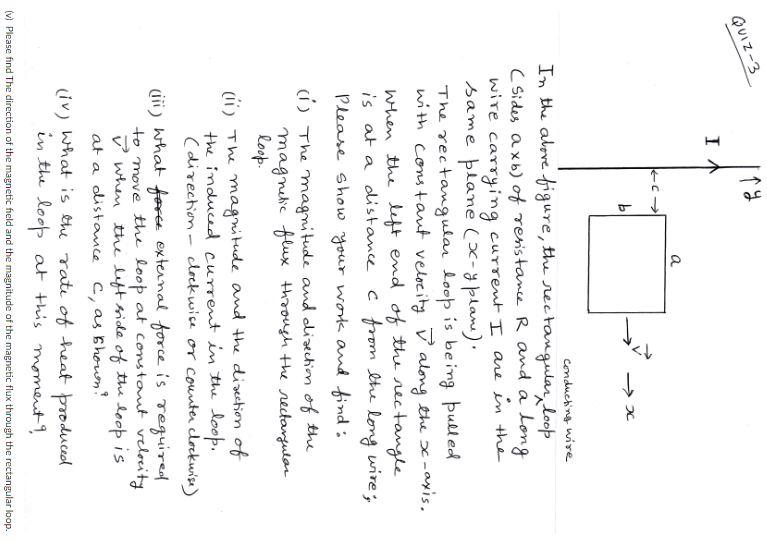 QUIZ-3
↑y
I
←c→
a
b
→ v→
→ x
conducting wire
In the above figure, the rectangular loop
(sides axb) of resistance R and a long
wire carrying current I are in the
same plane (x-y plane).
The rectangular loop is being pulled
with constant velocity v→ along the x-axis.
When the left end of the rectangle
is at a distance c from the long wire;
Please show your work and find:
(i) The magnitude and direction of the
magnetic flux through the rectangular
loop.
(ii) The magnitude and the direction of
the induced current in the loop.
(direction - clockwise or counter clockwise)
(iii) What force external force is required
to move the loop at constant velocity
v→ when the left side of the loop is
at a distance C, as shown?
(iv) What is the rate of heat produced
in the loop at this moment?
(v) Please find The direction of the magnetic field and the magnitude of the magnetic flux through the rectangular loop.